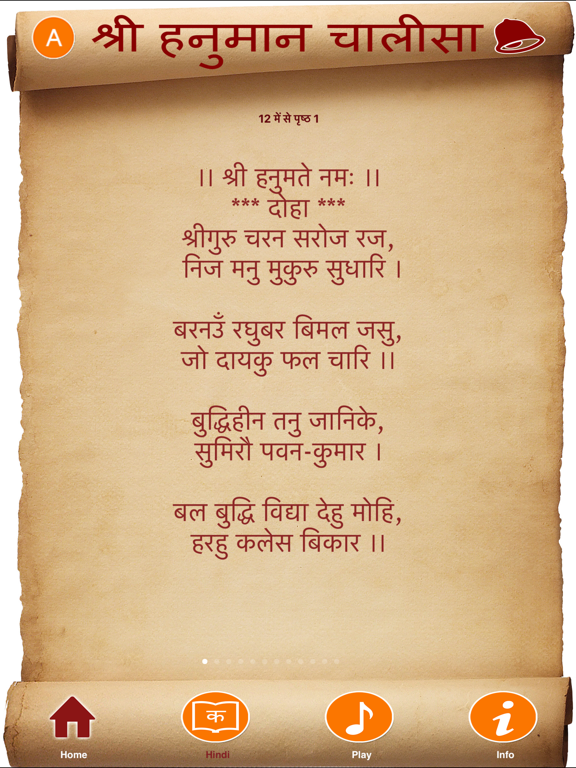 A
श्री हनुमान चालीसा
12 में से पृष्ठ 1
।। श्री हनुमते नमः ।।
*** दोहा ***
श्रीगुरु चरन सरोज रज,
निज मनु मुकुरु सुधारि ।
बरनउँ रघुबर बिमल जसु,
जो दायकु फल चारि ।।
बुद्धिहीन तनु जानिके,
सुमिरौ पवन-कुमार ।
बल बुद्धि विद्या देहु मोहि,
हरहु कलेस बिकार ।।
क
Home Hindi Play Info